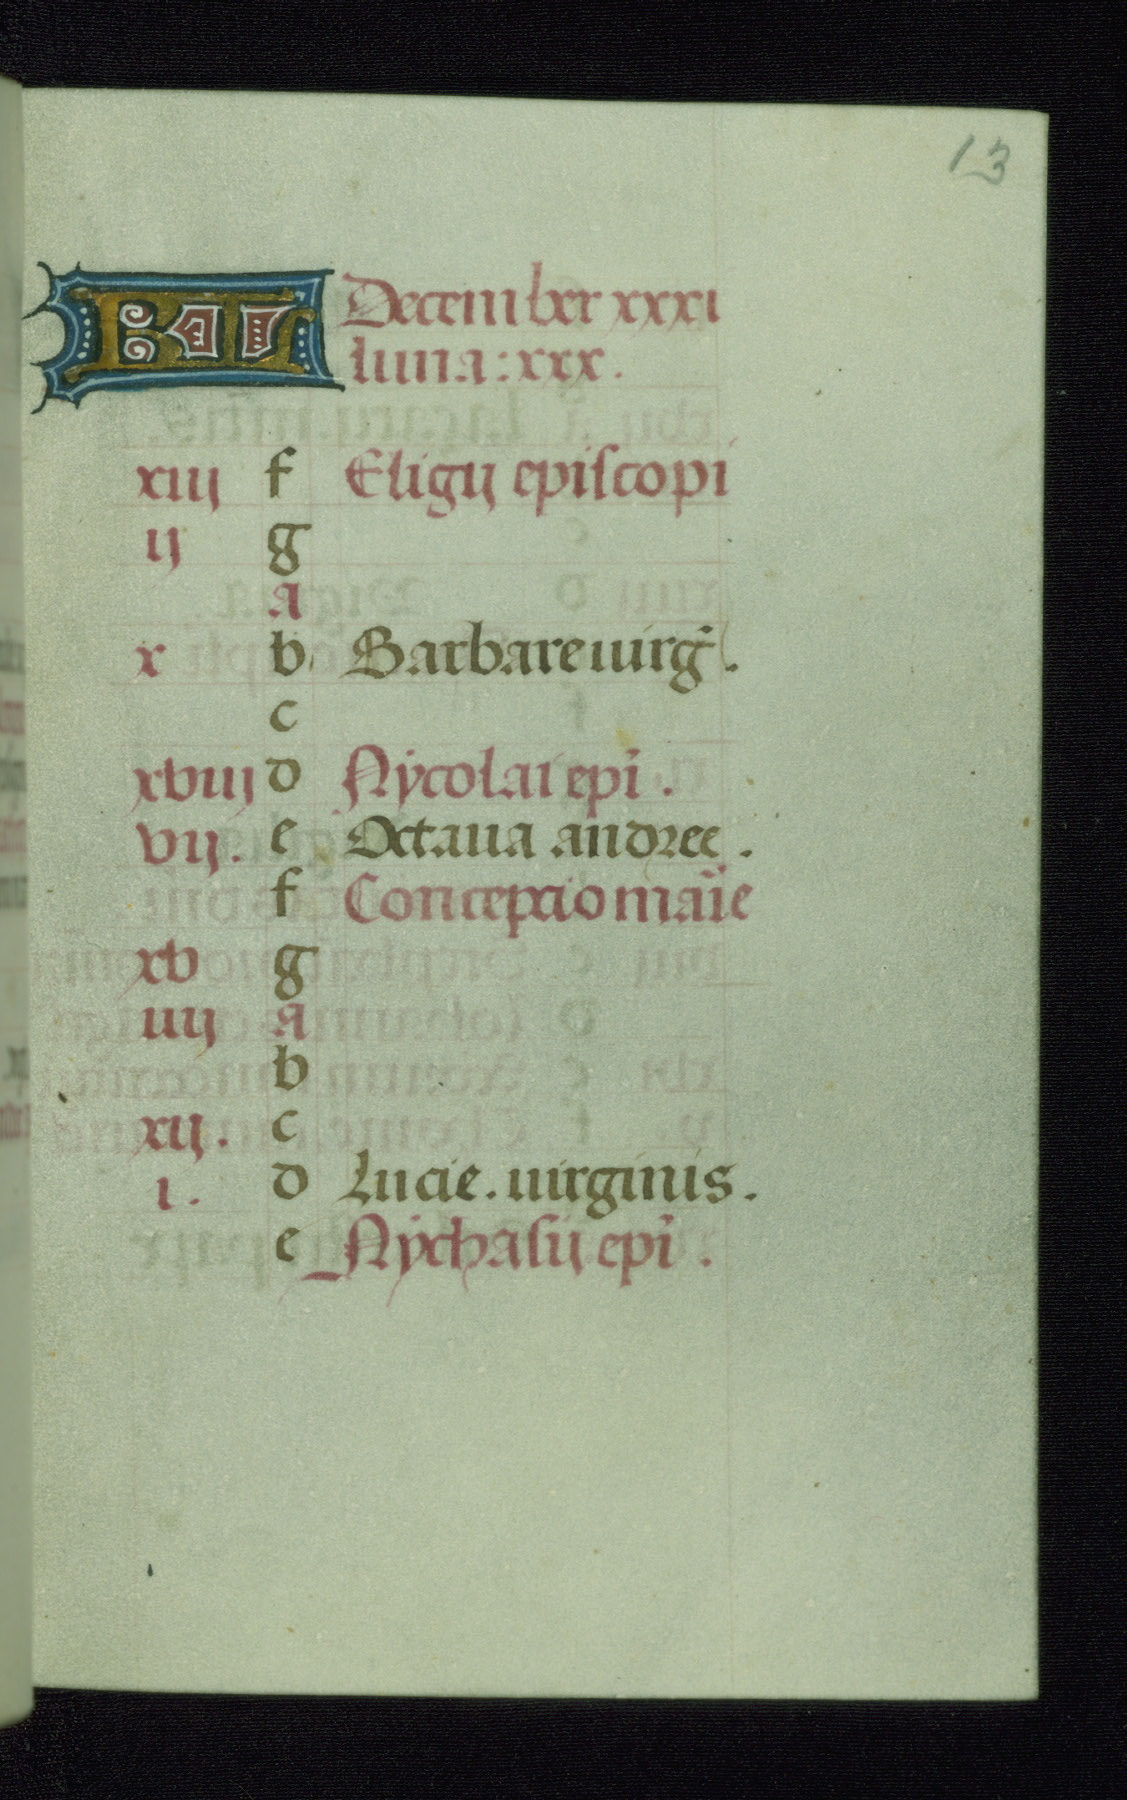 13
KL December xxxi
luna: xxx.
xiij f Eligij episcopi
ij g
a
x b Barbare uirg.
c
xviij d Nÿcolai epi.
vij. e Octaua andree.
f Concepcio marie
xv g
iiij a
b
xij. c
i. d Lucie. uirginis.
e Nÿchasij epi.